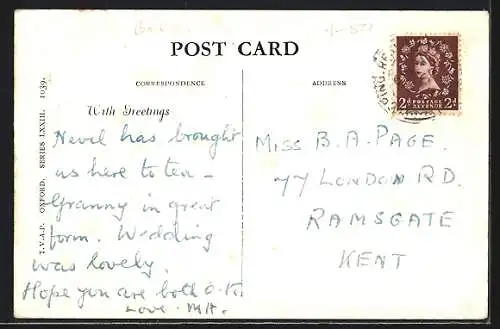 POST CARD
CORRESPONDENCE
ADDRESS
With Greetings
Nevil has brought
us here to tea –
Granny in great
form. Wedding
was lovely.
Hope you are both O.K.
Love. MA.
MISS B.A. PAGE.
77 LONDON RD.
RAMSGATE
KENT
2d POSTAGE REVENUE 2d
J.V.A.P. OXFORD. SERIES LXXIII. 1039.